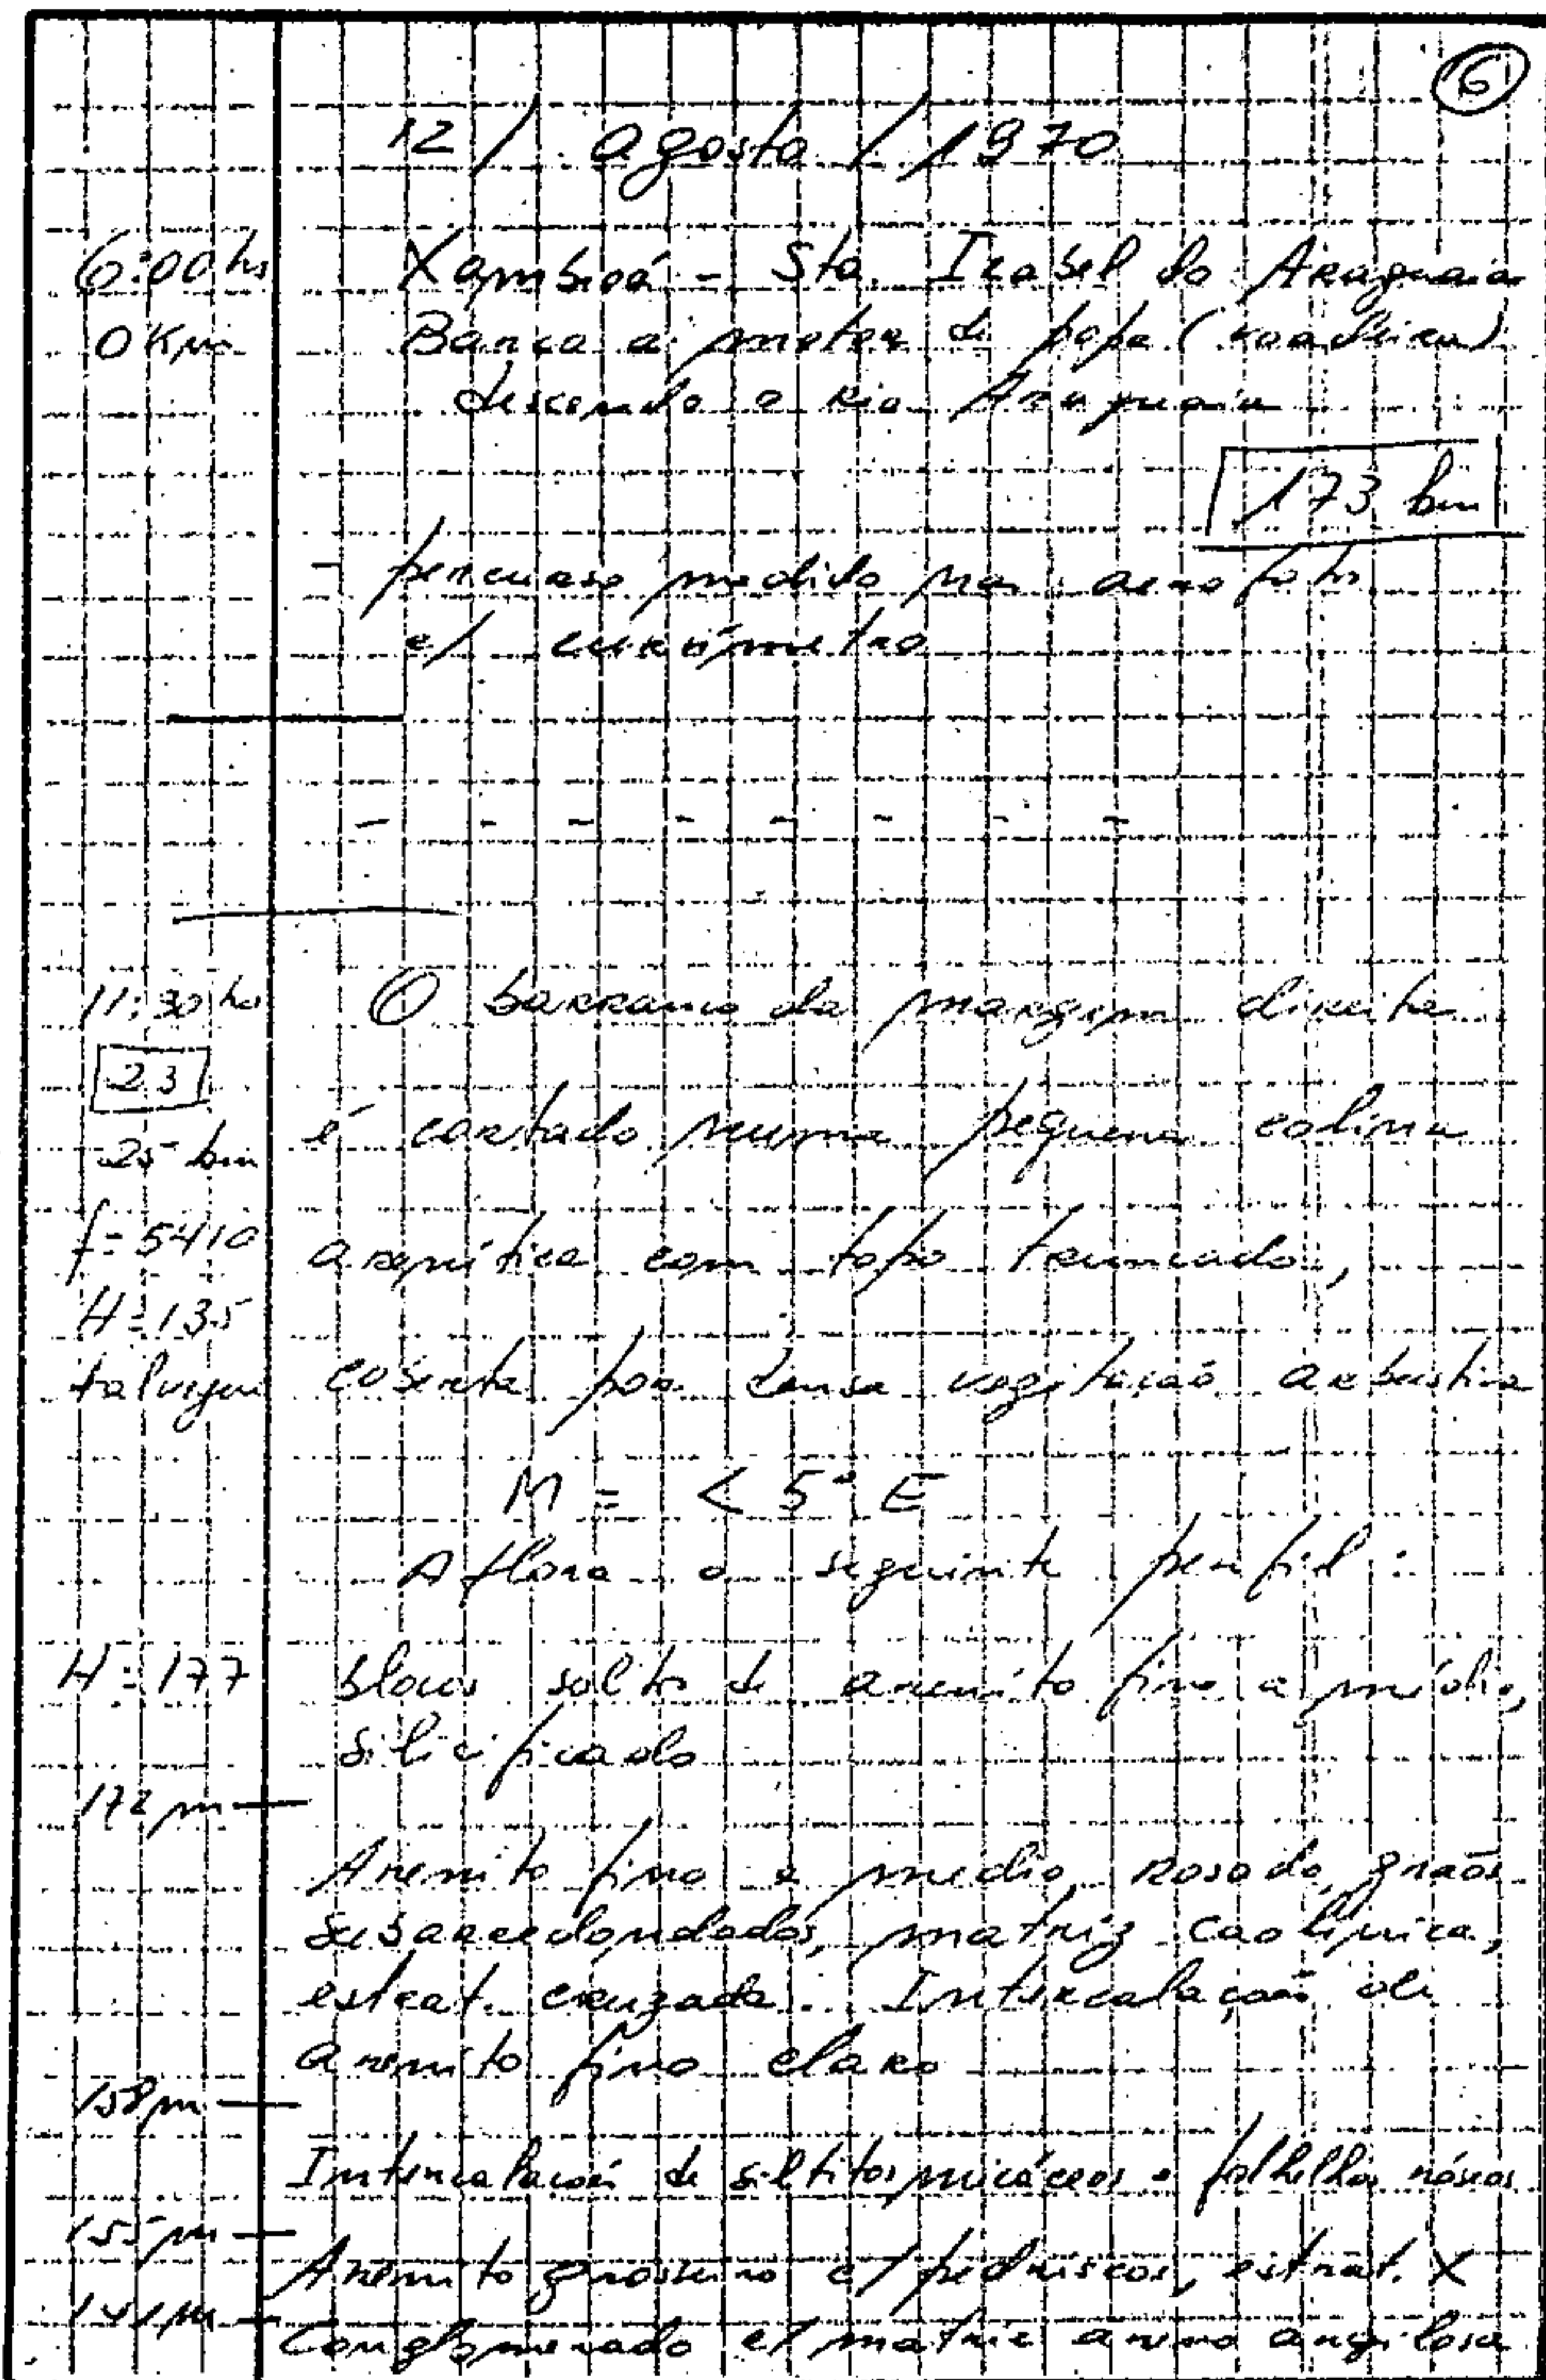 6
12 / agosto / 1970
6:00 hs Xambioá - Sta. Izabel do Araguaia
0 Km Barco a motor de popa (voadeira)
descendo o rio Araguaia
173 km
- percurso medido nas aero fotos
c/ curvímetro
11:30 hs O barranco da margem direita
23
25 km é cortado numa pequena colina
f= 5410 arenítica com topo truncado,
H=135
talvegue coberta por densa vegetação arbustiva
M = < 5° E
Aflora o seguinte perfil:
H=177 blocos soltos de arenito fino a médio,
silicificado
172 m
Arenito fino a medio, rosado, grãos
subarredondados, matriz caolínica,
estrat. cruzada. Intercalação de
arenito fino claro
158 m
Intercalação de siltitos micáceos e folhelhos róseos
155 m
Arenito grosseiro c/ pedriscos, estrat. X
Conglomerado c/ matriz areno argilosa